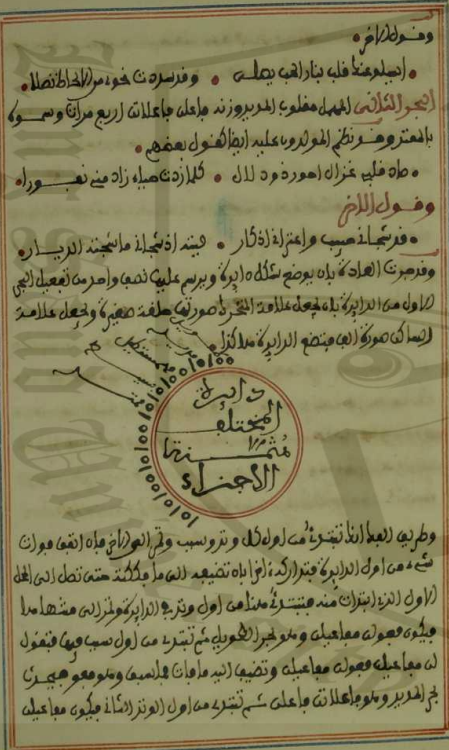 وقول الآخر
ايسلو عنها قلب بنار الحب يصلى وقد سددت نحوه من الالحاظ نصلا
البحر الثاني المهمل مقلوب المديد وزنه فاعلن فاعلاتن اربع مرات وسموه
بالممتد وقد نظم المولدون عليه ايضا كقول بعضهم
صاد قلبي غزال احور ذو دلال كلما زدت حبا زاد مني نفورا
وقول الآخر
قد شجاني حبيب واعتراني اذكار ليته اذ شجاني ما شجته الديار
وقد جرت العادة بان يوضع شكل دايرة ويرسم عليها نصف واحد من تفعيل البحر
الاول من الدايرة بان يجعل علامة المتحرك صورتها حلقة صغيرة ويجعل علامة
الساكن صورة الف فتضع الدايرة هكذا
دايرة
المختلف
مثمنة
الاجزاء
وطريق العمل انك تبتدئ من اول كل وتد وسبب وتمر الى الآخر فاذا انتهى فوات
شيء من اول الدايرة فتداركه آخرا بان تضيفه الى ما فككته حتى تصل الى المحل
الاول الذي ابتدات منه فتبتدئ هنا من اول وتد في الدايرة وتمر الى منتهاها
فيكون فعولن مفاعيلن وهو بحر الطويل ثم تبتدئ من اول سبب فيها فتقول
لن مفاعيلن فعولن مفاعيلن وتضيف اليه ما فات
بحر المديد وهو فاعلاتن فاعلن ثم تبتدئ من اول الوتد الثاني فيكون مفاعيلن